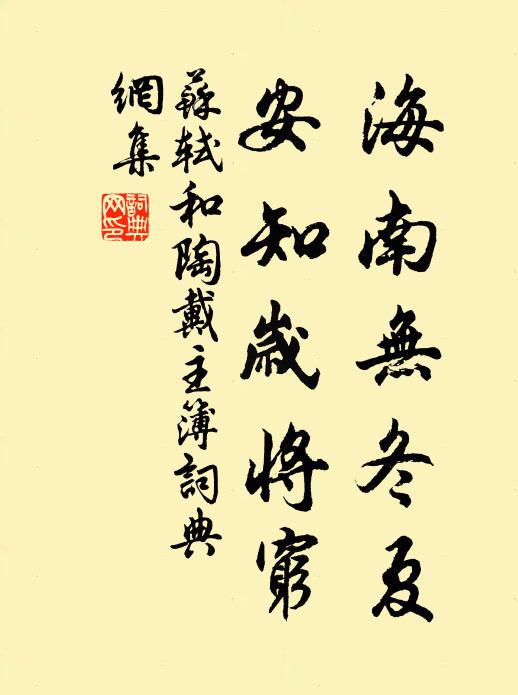 海南無冬夏
安知歲將窮
蘇軾和陶戴主簿詞典
網集
詞典
网印